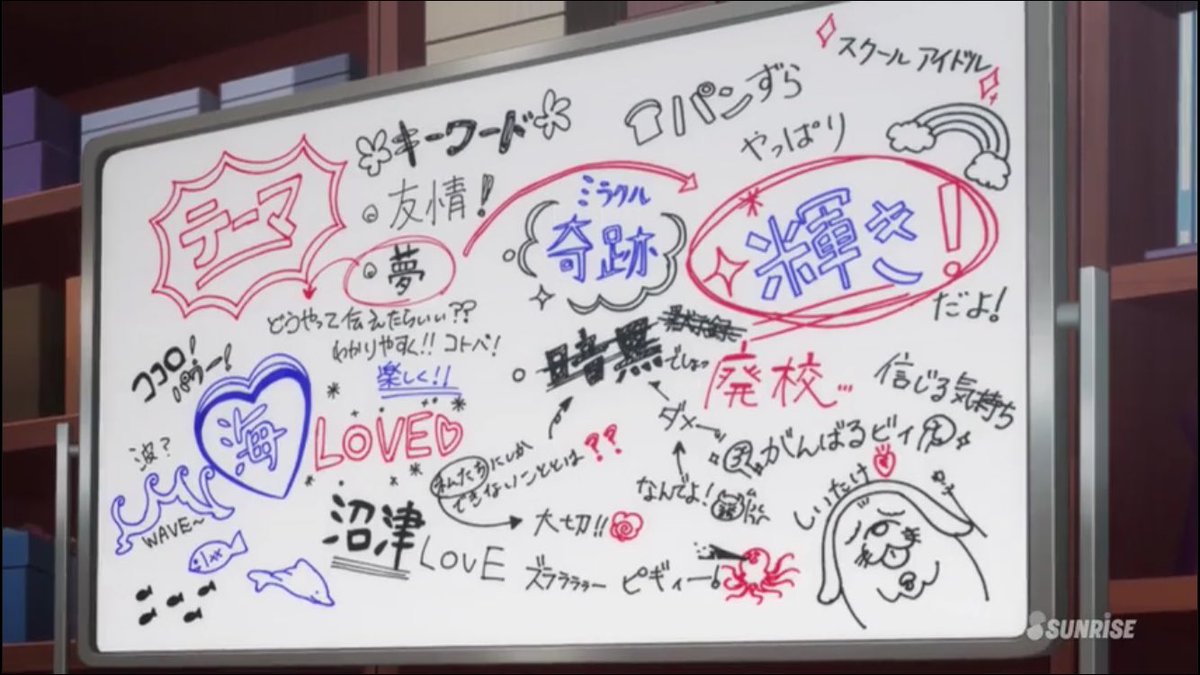 スクールアイドル
パンずら
キーワード
やっぱり
テーマ
友情!
ミラクル
奇跡
輝き!
夢
だよ!
どうやって伝えたらいい??
わかりやすく!!コトバ!
楽しく!!
暗黒
でしょっ
廃校...
信じる気持ち
ココロ!
パワー!
海
LOVE
ダメー
がんばるビィ
波?
私たちにしか
できないこととは??
なんでよ!
しいたけ
WAVE~
沼津
LOVE
大切!!
ズララララー ピギィー!
SUNRISE